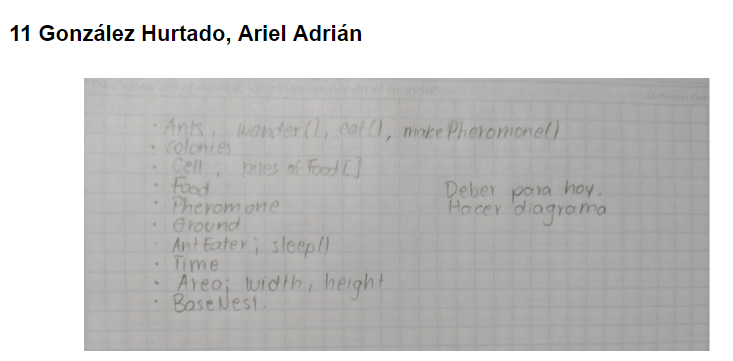 11 González Hurtado, Ariel Adrián
· Ants; wander(), eat(), makePheromone()
· colonies
· Cell; piles of Food[]
· Food
· Pheromone
· Ground
· AntEater; sleep()
· Time
· Area; width, height
· BaseNest.
Deber para hoy.
Hacer diagrama